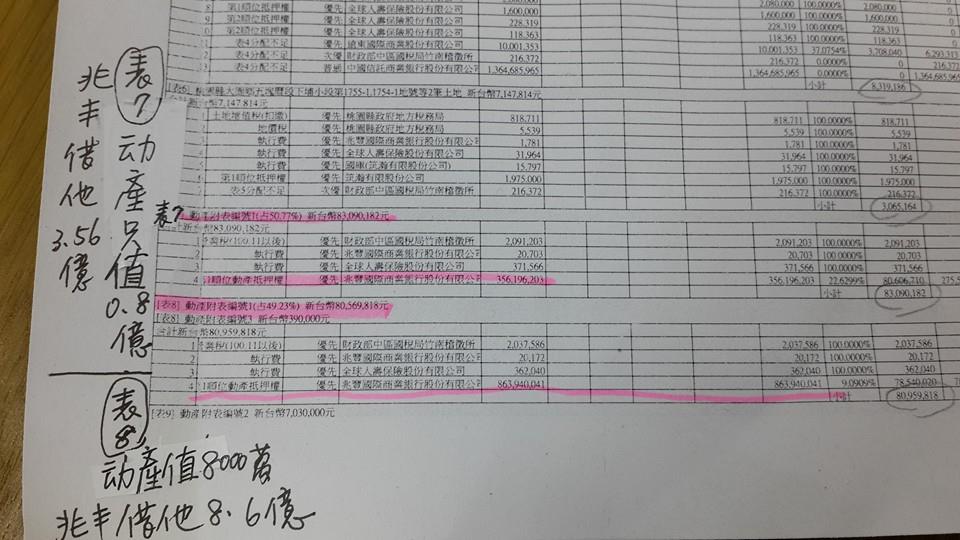 8 第1順位抵押權 優先 全球人壽保險股份有限公司 1,600,000 2,080,000 100.0000% 2,080,000 0
9 第2順位抵押權 優先 全球人壽保險股份有限公司 228.319 1,600,000 100.0000% 1,600,000
第2順位抵押權 優先 全球人壽保險股份有限公司 118.363 228.319 100.0000% 228.319
表4分配不足 優先 國際商業銀行股份有限公司 10,001,353 118.363 100.0000% 118.363
表4分配不足 次優 財政部中區國稅局竹南稽徵所 216.372 10,001,353 37.0754% 3,708,040 6,293,31
表4分配不足 普通 中國信託商業銀行股份有限公 1,364,685,965 216.372 0.0000% 0 216.372
1,364,685,965 0.0000% 0
小計 8,319,186
[表6] 桃園縣大溪鄉 段下埔小段第1755-1,1754-1地號等2筆土地 新台幣7,147,814元
合計新台幣7,147,814元
土地增值稅(扣繳) 優先 桃園縣政府地方稅務局 818,711 818,711 100.0000% 818,711
地價稅 優先 桃園縣政府地方稅務局 5,539 5,539 100.0000% 5,539
執行費 優先 兆豐國際商業銀行股份有限公司 1,781 1,781 100.0000% 1,781
執行費 優先 全球人壽保險股份有限公司 31,964 31,964 100.0000% 31,964
執行費 優先 國庫(筑瀚有限股份公司) 15,797 15,797 100.0000% 15,797
第1順位抵押權 優先 筑瀚有限股份公司 1,975,000 1,975,000 100.0000% 1,975,000
表5分配不足 次優 財政部中區國稅局竹南稽徵所 216,372 216,372 100.0000% 216,372
小計 3,065,164
表7 動產附表編號1(占50.77%) 新台幣83,090,182元
合計新台幣83,090,182元
營業稅(100.11以後) 優先 財政部中區國稅局竹南稽徵所 2,091,203 2,091,203 100.0000% 2,091,203
執行費 優先 兆豐國際商業銀行股份有限公司 20,703 20,703 100.0000% 20,703
執行費 優先 全球人壽保險股份有限公司 371,566 371,566 100.0000% 371,566
4 順位動產抵押權 優先 兆豐國際商業銀行股份有限公司 356,196,203 356,196,203 22.6299% 80,606,710 275,5
小計 83,090,182
[表8] 動產附表編號1(占49.23%) 新台幣80,569,818元
[表8] 動產附表編號3 新台幣390,000元
合計新台幣80,959,818元
1 營業稅(100.11以後) 優先 財政部中區國稅局竹南稽徵所 2,037,586 2,037,586 100.0000% 2,037,586
2 執行費 優先 兆豐國際商業銀行股份有限公司 20,172 20,172 100.0000% 20,172
3 執行費 優先 全球人壽保險股份有限公司 362,040 362,040 100.0000% 362,040
4 順位動產抵押權 優先 兆豐國際商業銀行股份有限公司 863,940,041 863,940,041 9.0909% 78,540,020
小計 80,959,818
[表9] 動產附表編號2 新台幣7,030,000元
表7
动產只值0.8億
兆丰借他3.56億
表8
动產值8000萬
兆丰借他8.6億